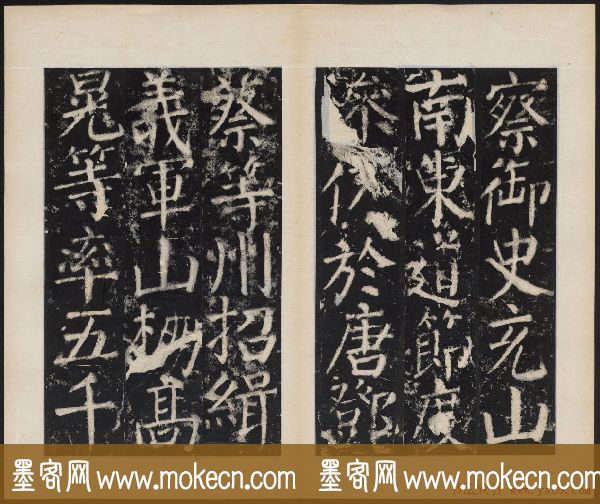 察御史充山
南東道節度
仍於唐鄧
蔡等州招緝
義軍山棚高
晃等率五千
墨客网 www.mokecn.com
墨客网 www.mokecn.com